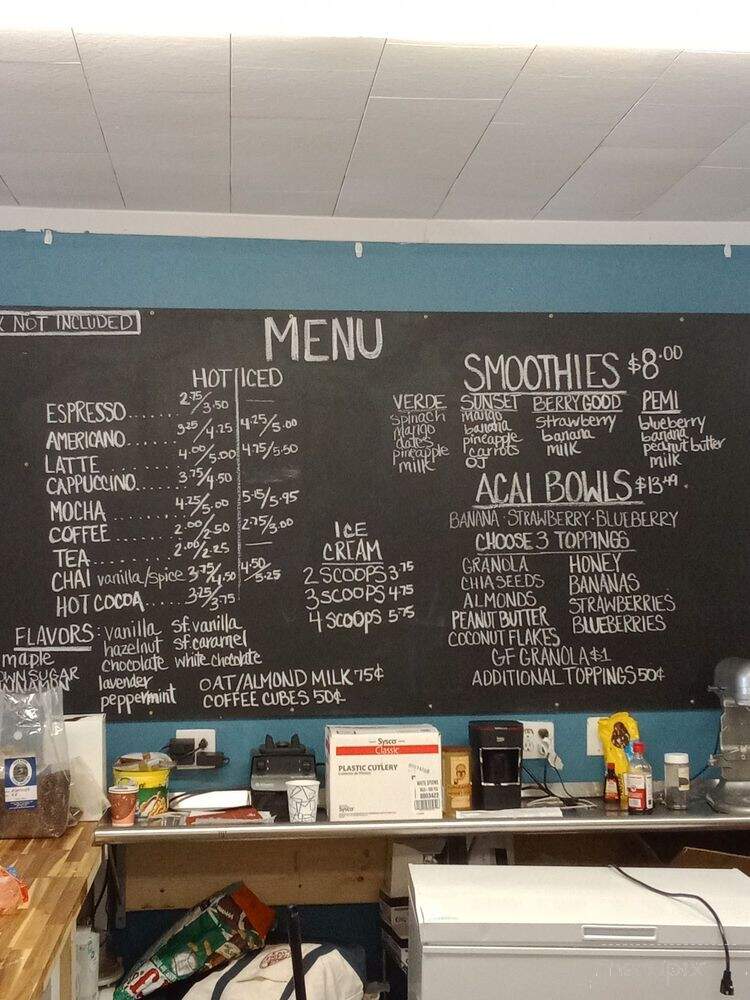 NOT INCLUDED
MENU
HOT ICED
ESPRESSO...... 2.75/3.50 —
AMERICANO...... 3.25/4.25 4.25/5.00
LATTE.......... 4.00/5.00 4.75/5.50
CAPPUCCINO.... 3.75/4.50
MOCHA......... 4.25/5.00 5.15/5.95
COFFEE........ 2.00/2.50 2.75/3.00
TEA........... 2.00/2.25 —
CHAI vanilla/spice 3.75/4.50 4.50/5.25
HOT COCOA..... 3.25/3.75
FLAVORS: vanilla sf.vanilla
hazelnut sf.caramel
maple chocolate white chocolate
SUGAR lavender
peppermint
OAT/ALMOND MILK 75¢
COFFEE CUBES 50¢
ICE
CREAM
2 SCOOPS 3.75
3 SCOOPS 4.75
4 SCOOPS 5.75
SMOOTHIES $8.00
VERDE SUNSET BERRY GOOD PEMI
spinach mango strawberry blueberry
mango banana banana banana
dates pineapple milk peanut butter
pineapple carrots milk
milk OJ
ACAI BOWLS $13.49
BANANA · STRAWBERRY · BLUEBERRY
CHOOSE 3 TOPPINGS
GRANOLA HONEY
CHIA SEEDS BANANAS
ALMONDS STRAWBERRIES
PEANUT BUTTER BLUEBERRIES
COCONUT FLAKES
GF GRANOLA $1
ADDITIONAL TOPPINGS 50¢
Sysco
Classic
PLASTIC CUTLERY
Sysco